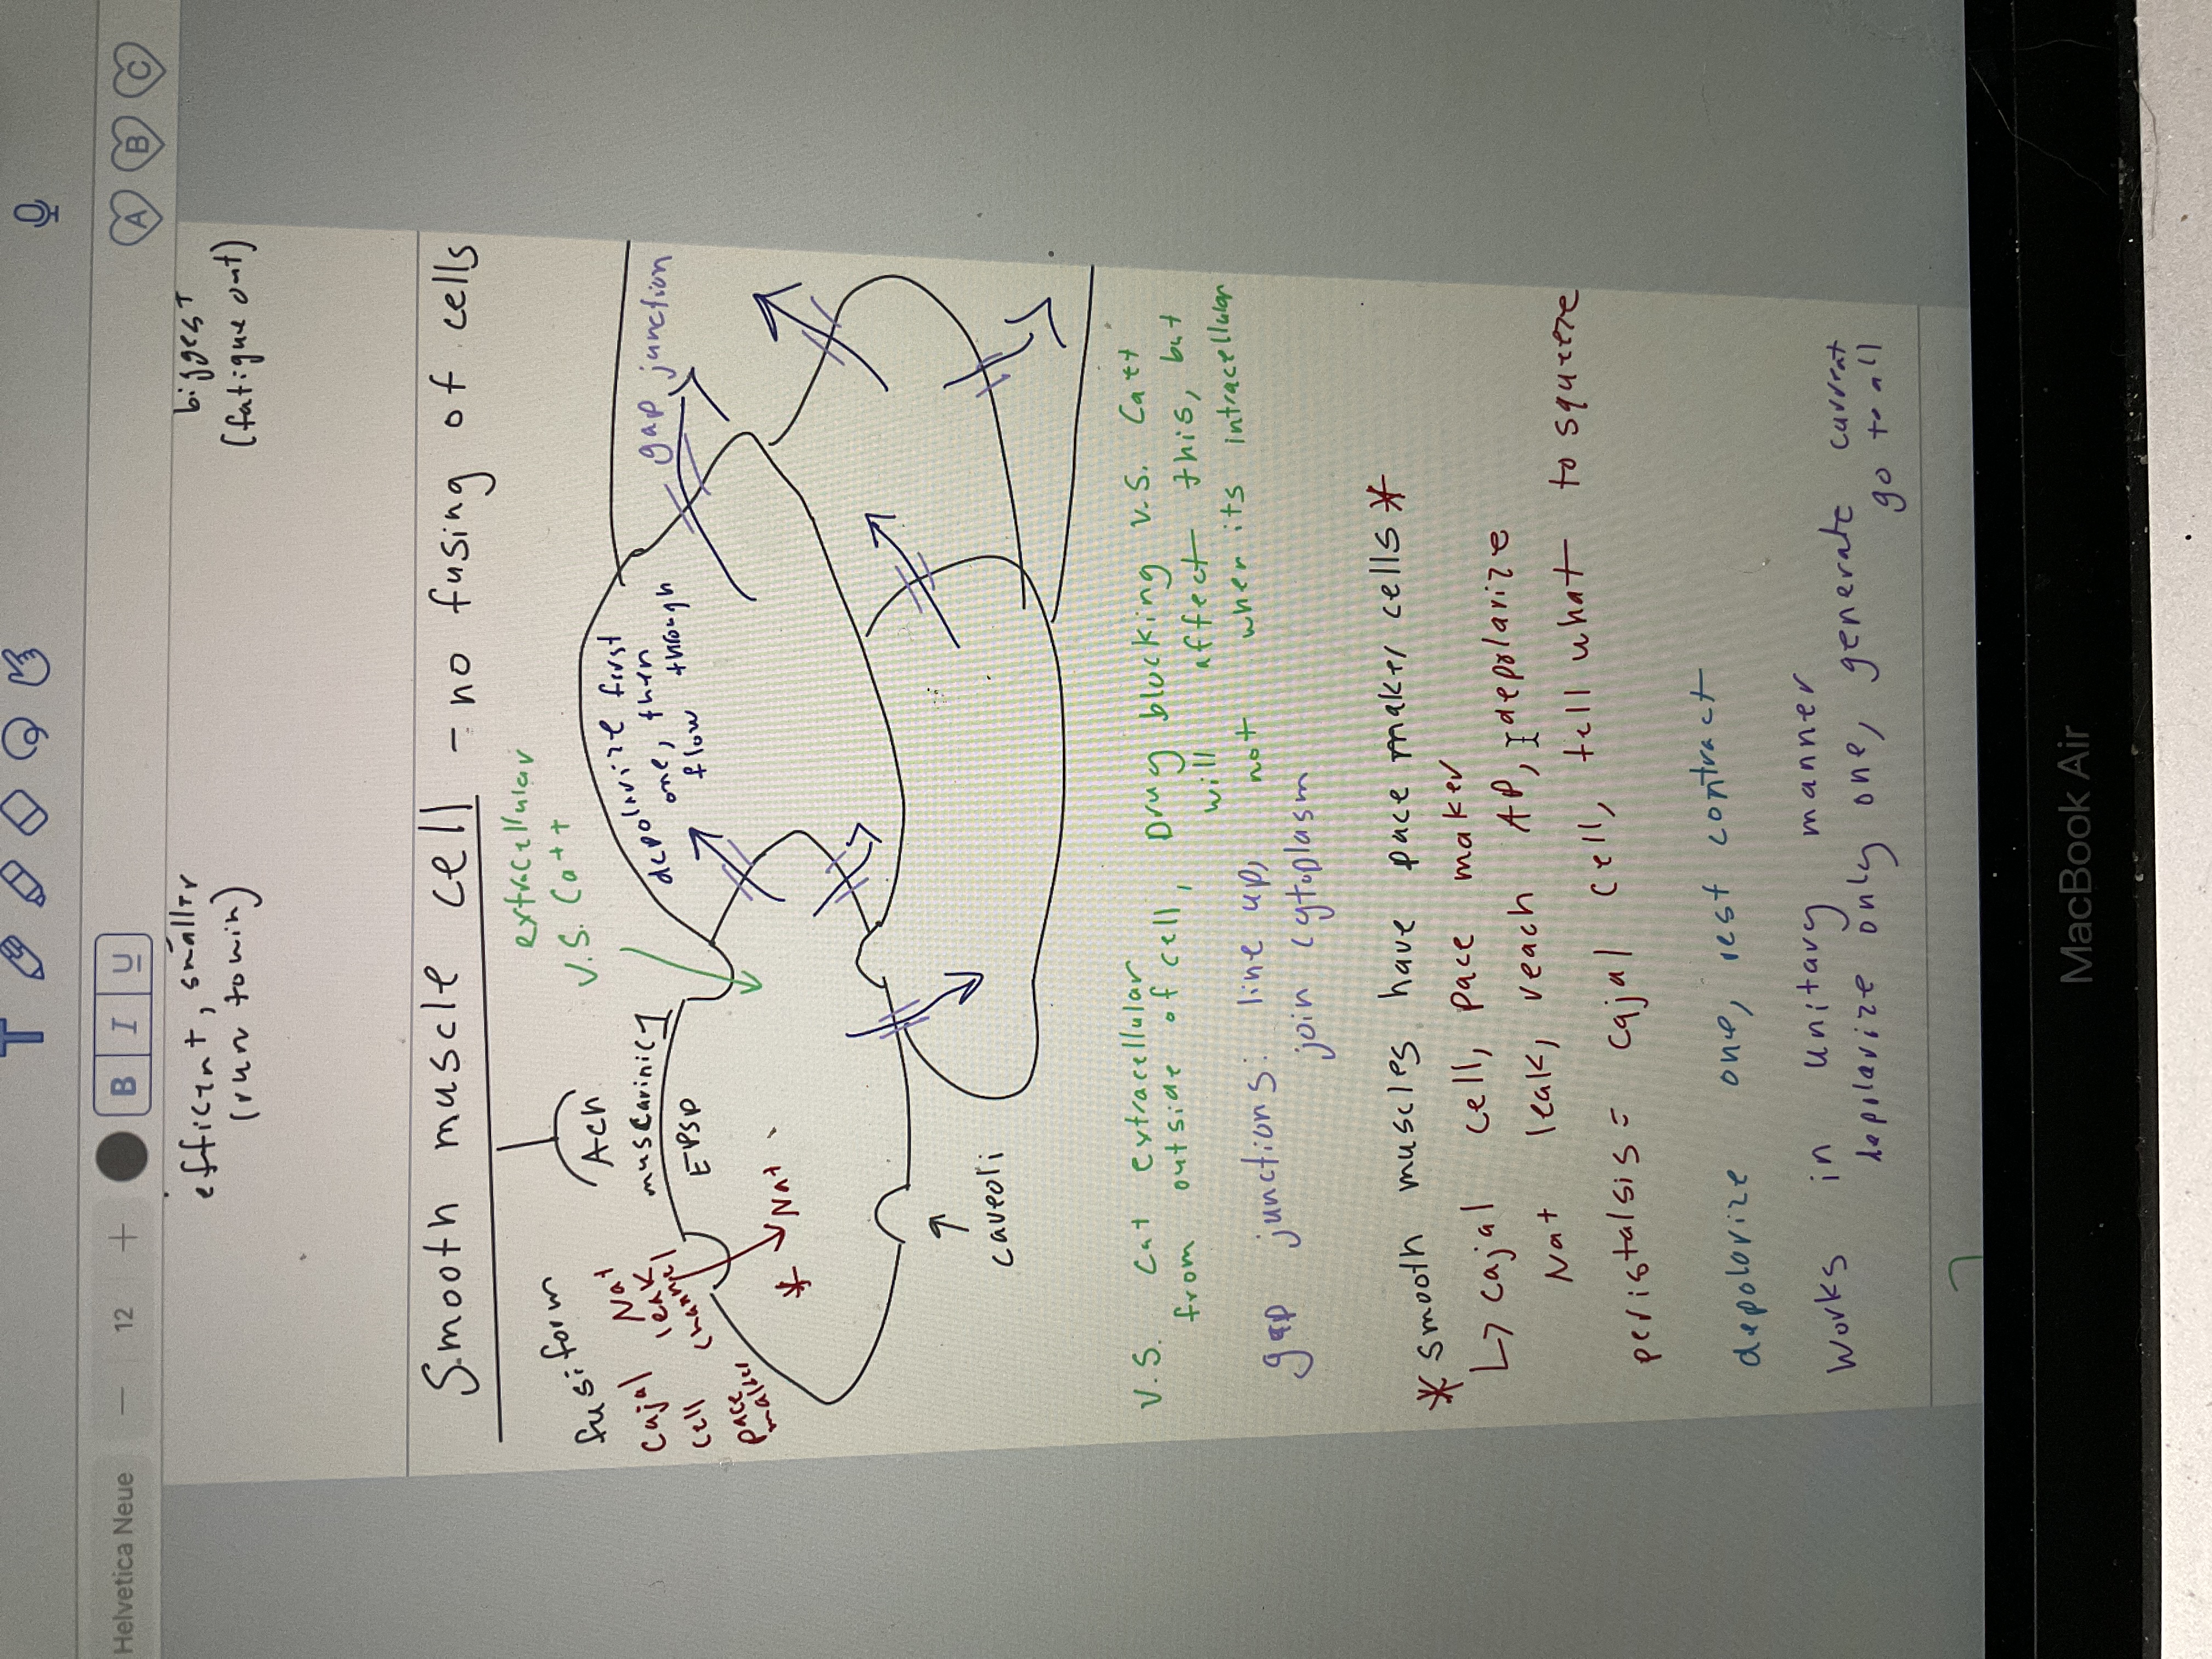 T
Helvetica Neue — 12 + B I U A B C
efficient, smaller
(run to win)
biggest
(fatigue out)
Smooth muscle cell - no fusing of cells
fusiform
Ach
muscarinic 1
EPSP
extracellular
V.S. Ca++
Cajal
cell
pace
maker
Na+
leak
channel
* Na+
depolarize first
one, then
flow through
gap junction
caveoli
V.S. Ca+ extracellular
from outside of cell,
Drug blocking V.S. Ca++
will affect this, but
not when its intracellular
gap junctions: line up,
join cytoplasm
* smooth muscles have pace maker cells *
↳ cajal cell, pace maker
Na+ leak, reach AP, depolarize
peristalsis = cajal cell, tell what to squeeze
depolarize one, rest contract
Works in unitary manner
depolarize only one, generate current
go to all
MacBook Air